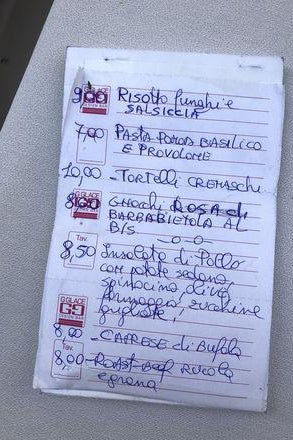 9,00 RISOTTO Funghi e
SALSICCIA
7,00 PASTA POMOD BASILICO
E PROVOLONE
10,00 - TORTELLI CREMASCHI
8,00 GNOCHI ROSA di
BARBABIETOLA AL
B/S
8,50 Insalata di Pollo
con patate sedano,
spinacino, olive,
formaggio, zucchine
grigliate,
G GLACE
8,00 - CAPRESE di Bufala
Tav.
8,00 - ROAST-Beef rucola
e grana